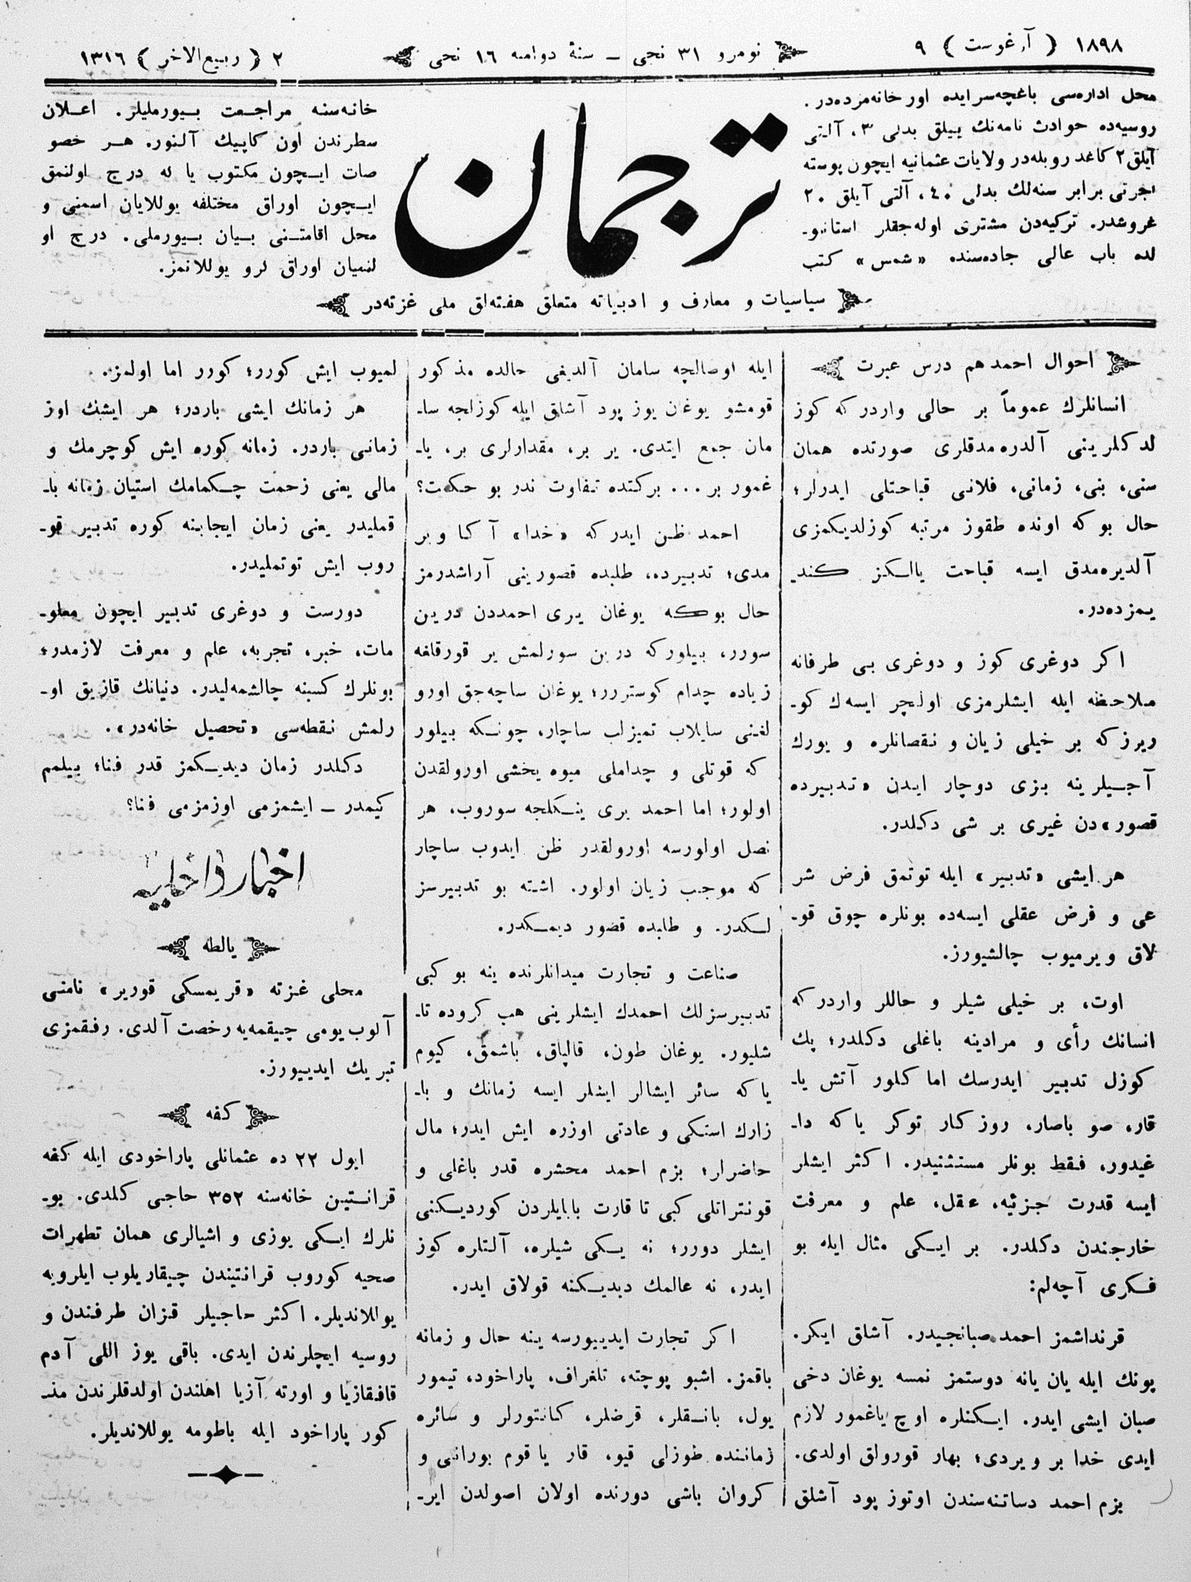 ۱۸۹۸ ( آرغوست ) ۹
نومرو ۳۱ نحی ــ سنۀ دوامه ۱٦ نحی
۲ ( ربیع الاخر ) ۱۳۱٦
محل اداره‌سی باغچه‌سرایده اورخانه‌مزده‌در.
روسیه‌ده حوادث نامه‌نك ییلق بدلی ۳، آلتی
آیلق ۲ کاغد روبله‌در ولایات عثمانیه ایچون پوسته
اجرتی برابر سنه‌لك بدلی ۴۰، آلتی آیلق ۲۰
غروشدر. ترکیه‌دن مشتری اوله‌جقلر استانبو-
لده باب عالی جاده‌سنده «شمس» کتب
ترجمان
خانه‌سنه مراجعت بیورملیلر. اعلان
سطرندن اون کاپیك آلنور. هر خصو
صات ایچون مکتوب یا له درج اولنمق
ایچون اوراق مختلفه یوللایان اسمنی و
محل اقامتنی بیان بیورملی. درج او
لنمیان اوراق کرو یوللانمز.
سیاسیات و معارف و ادبیاته متعلق هفته‌لق ملی غزته‌در
احوال احمد هم درس عبرت
انسانلرك عموماً بر حالی واردر که کوز
لدکلرینی آلدره‌مدقلری صورتده همان
سنی، بنی، زمانی، فلانی قباحتلی ایدرلر؛
حال بوکه اونده طقوز مرتبه کوزلدیکمزی
آلدیره‌مدق ایسه قباحت یالکز کندی
یمزده‌در.
اکر دوغری کوز و دوغری بی طرفانه
ملاحظه ایله ایشلرمزی اولچر ایسه‌ك کو-
ریرز که بر خیلی زیان و نقصانلره و یورك
آجیلرینه بزی دوچار ایدن «تدبیرده
قصور» دن غیری بر شی دکلدر.
هر ایشی «تدبیر» ایله توتمق فرض شر
عی و فرض عقلی ایسه‌ده بونلره چوق قو-
لاق ویرمیوب چالشیورز.
اوت، بر خیلی شیلر و حاللر واردر که
انسانك رأی و مرادینه باغلی دکلدر؛ پك
کوزل تدبیر ایدرسك اما کلور آتش یا-
قار، صو باصار، روزکار توکر یاکه دا-
غیدور، فقط بونلر مستثنیدر. اکثر ایشلر
ایسه قدرت جزئیه، عقل، علم و معرفت
خارجندن دکلدر. بر ایکی مثال ایله بو
فکری آچه‌لم:
قرنداشمز احمد صبانجیدر. آشلق ایکر.
پونك ایله یان یانه دوستمز نمسه یوغان دخی
صبان ایشی ایدر. ایکنلره اوچ یاغمور لازم
ایدی خدا بر ویردی؛ بهار قورولق اولدی.
بزم احمد دساتنه‌سندن اوتوز پود آشلق
ایله اوصالچه سامان آلدیغی حالده مذکور
قومشو یوغان یوز پود آشلق ایله کوزلجه سا-
مان جمع ایتدی. یر بر، مقدارلری بر، یا-
غمور بر... برکتده تفاوت ندر بو حکمت؟
احمد ظن ایدر که «خدا» آکا ویر
مدی؛ تدبیرده، طلبده قصورینی آراشدرمز
حال بوکه یوغان یری احمددن درین
سورر، بیلور که درین سورلمش یر قورقلغه
زیاده چدام کوسترر؛ یوغان ساچه‌جق اورو
لغنی سایلاب تمیزلب ساچار، چونکه بیلور
که قوتلی و چداملی میوه یخشی اورولقدن
اولور؛ اما احمد یری ینکلجه سوروب، هر
نصل اولورسه اورولقدر ظن ایدوب ساچار
که موجب زیان اولور. اشته بو تدبیرسز
لکدر. و طلبده قصور دیمکدر.
صناعت و تجارت میدانلرنده ینه بو کبی
تدبیرسزلك احمدك ایشلرینی هب کروده تا-
شلیور. یوغان طون، قالپاق، باشمق، کیوم
یاکه سائر ایشالر ایشلر ایسه زمانك و با-
زارك استکی و عادتی اوزره ایش ایدر؛ مال
حاضرلر؛ بزم احمد محشره قدر باغلی و
قونتراتلی کبی تا قارت بابایلردن کوردیکنی
ایشلر دورر؛ نه یکی شیلره، آلتلره کوز
ایدر، نه عالمك دیدیکنه قولاق ایدر.
اکر تجارت ایدییورسه ینه حال و زمانه
باقمز. اشبو پوچته، تلغراف، پاراخود، تیمور
یول، بانقلر، قرضلر، کانتورلر و سائره
زماننده طوزلی قیو، قار یا قوم بورانی و
کروان باشی دورنده اولان اصولدن ایر-
لمیوب ایش کورر؛ کورر اما اولمز.
هر زمانك ایشی باردر؛ هر ایشك اوز
زمانی باردر. زمانه کوره ایش کوچرمك و
مالی یعنی زحمت چکمامك استیان زمانه با-
قملیدر یعنی زمان ایجابنه کوره تدبیر قو-
روب ایش توتملیدر.
دورست و دوغری تدبیر ایچون معلو-
مات، خبر، تجربه، علم و معرفت لازمدر؛
بونلرك کسبنه چالشمه‌لیدر. دنیانك قازیق او-
رلمش نقطه‌سی «تحصیل خانه‌در».
دکلدر زمان دیدیکمز قدر فنا؛ بیلمم
کیمدر ــ ایشمزمی اوزمزمی فنا؟
اخبار داخلیه
یالطه
محلی غزته «قریمسکی قوریر» نامنی
آلوب یومی چیقمه‌یه رخصت آلدی. رفیقمزی
تبریك ایدییورز.
کفه
ایول ۲۲ ده عثمانلی پاراخودی ایله کفه
قرانتین خانه‌سنه ۳۵۲ حاجی کلدی. بو-
نلرك ایکی یوزی و اشیالری همان تطهرات
صحیه کوروب قرانتیندن چیقاریلوب ایلرویه
یوللاندیلر. اکثر حاجیلر قزان طرفندن و
روسیه ایچلرندن ایدی. باقی یوز اللی آدم
قافقازیا و اورته آزیا اهلندن اولدقلرندن مذ-
کور پاراخود ایله باطومه یوللاندیلر.